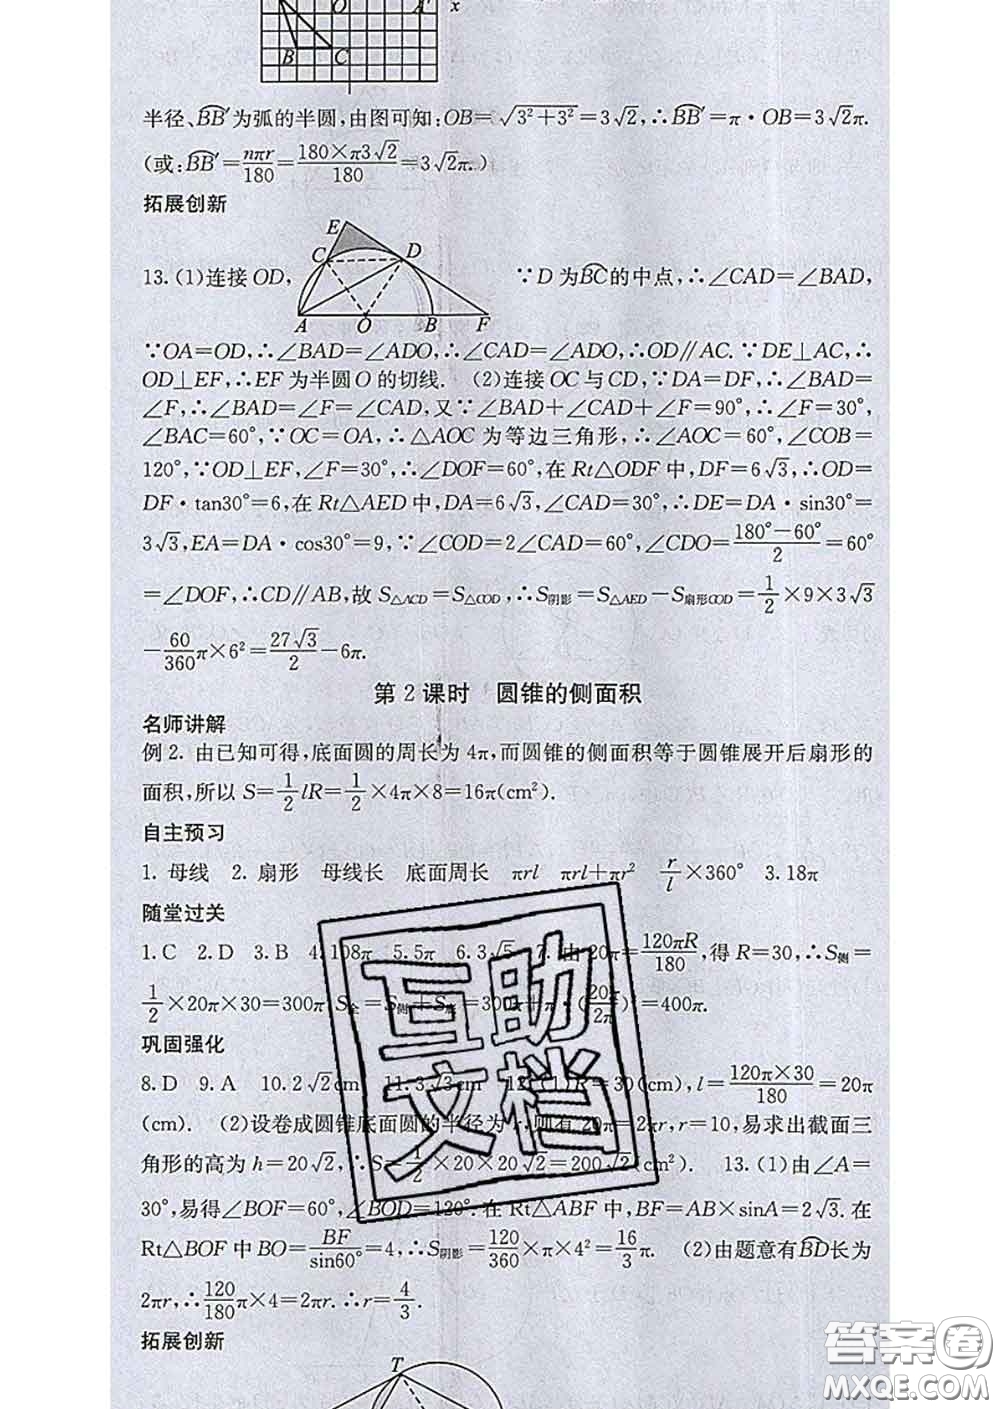 O A′ x
B C
半径、BB′为弧的半圆,由图可知:OB=√3²+3²=3√2,∴BB′=π·OB=3√2π.
(或:BB′=nπr/180=180×π3√2/180=3√2π.)
拓展创新
E
C D
13.(1)连接OD, ∵D为BC的中点,∴∠CAD=∠BAD,
A O B F
∵OA=OD,∴∠BAD=∠ADO,∴∠CAD=∠ADO,∴OD∥AC.∵DE⊥AC,∴
OD⊥EF,∴EF为半圆O的切线. (2)连接OC与CD,∵DA=DF,∴∠BAD=
∠F,∴∠BAD=∠F=∠CAD,又∵∠BAD+∠CAD+∠F=90°,∴∠F=30°,
∠BAC=60°,∵OC=OA,∴△AOC为等边三角形,∴∠AOC=60°,∠COB=
120°,∵OD⊥EF,∠F=30°,∴∠DOF=60°,在Rt△ODF中,DF=6√3,∴OD=
DF·tan30°=6,在Rt△AED中,DA=6√3,∠CAD=30°,∴DE=DA·sin30°=
3√3,EA=DA·cos30°=9,∵∠COD=2∠CAD=60°,∠CDO=180°-60°/2=60°
=∠DOF,∴CD∥AB,故S△ACD=S△COD,∴S阴影=S△AED-S扇形COD=1/2×9×3√3
-60/360π×6²=27√3/2-6π.
第2课时 圆锥的侧面积
名师讲解
例2. 由已知可得,底面圆的周长为4π,而圆锥的侧面积等于圆锥展开后扇形的
面积,所以S=1/2lR=1/2×4π×8=16π(cm²).
自主预习
1. 母线 2. 扇形 母线长 底面周长 πrl πrl+πr² r/l×360° 3.18π
随堂过关
1.C 2.D 3.B 4.108π 5.5π 6.3√5 7. 由20π=120πR/180,得R=30,∴S侧=
1/2×20π×30=300π S全=S侧+S底=300π+π·(20π/2π)²=400π.
巩固强化
8.D 9.A 10.2√2cm 11.3√3cm 12.(1)R=30(cm),l=120π×30/180=20π
(cm). (2)设卷成圆锥底面圆的半径为r,则有20π=2πr,r=10,易求出截面三
角形的高为h=20√2,∴S=1/2×20×20√2=200√2(cm²). 13.(1)由∠A=
30°,易得∠BOF=60°,∠BOD=120°.在Rt△ABF中,BF=AB×sinA=2√3.在
Rt△BOF中BO=BF/sin60°=4,∴S阴影=120/360×π×4²=16/3π. (2)由题意有BD长为
2πr,∴120/180π×4=2πr.∴r=4/3.
拓展创新
T
互助文档
答案圈
MXQE.COM